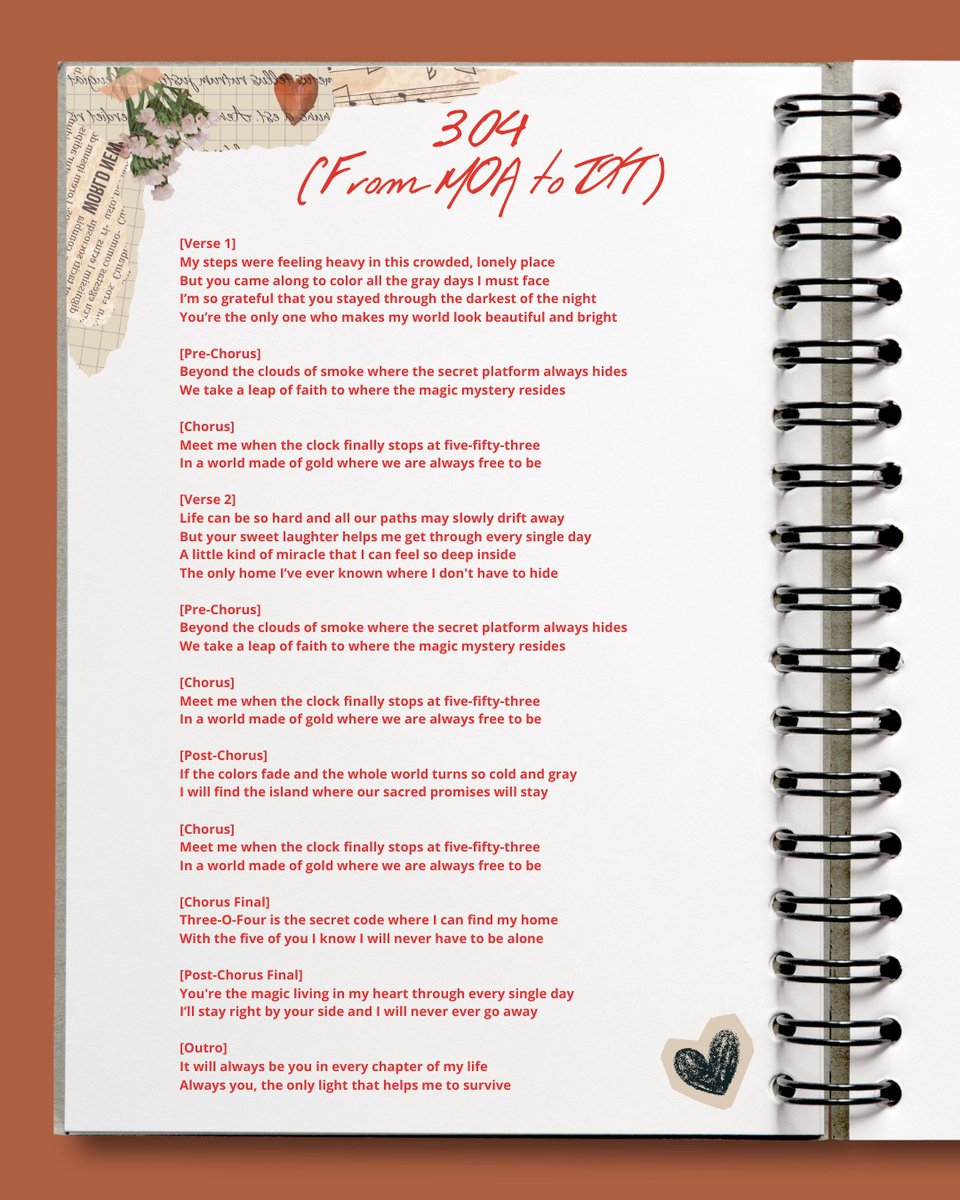 304
(From MOA to TXT)
[Verse 1]
My steps were feeling heavy in this crowded, lonely place
But you came along to color all the gray days I must face
I’m so grateful that you stayed through the darkest of the night
You’re the only one who makes my world look beautiful and bright
[Pre-Chorus]
Beyond the clouds of smoke where the secret platform always hides
We take a leap of faith to where the magic mystery resides
[Chorus]
Meet me when the clock finally stops at five-fifty-three
In a world made of gold where we are always free to be
[Verse 2]
Life can be so hard and all our paths may slowly drift away
But your sweet laughter helps me get through every single day
A little kind of miracle that I can feel so deep inside
The only home I’ve ever known where I don't have to hide
[Pre-Chorus]
Beyond the clouds of smoke where the secret platform always hides
We take a leap of faith to where the magic mystery resides
[Chorus]
Meet me when the clock finally stops at five-fifty-three
In a world made of gold where we are always free to be
[Post-Chorus]
If the colors fade and the whole world turns so cold and gray
I will find the island where our sacred promises will stay
[Chorus]
Meet me when the clock finally stops at five-fifty-three
In a world made of gold where we are always free to be
[Chorus Final]
Three-O-Four is the secret code where I can find my home
With the five of you I know I will never have to be alone
[Post-Chorus Final]
You're the magic living in my heart through every single day
I’ll stay right by your side and I will never ever go away
[Outro]
It will always be you in every chapter of my life
Always you, the only light that helps me to survive